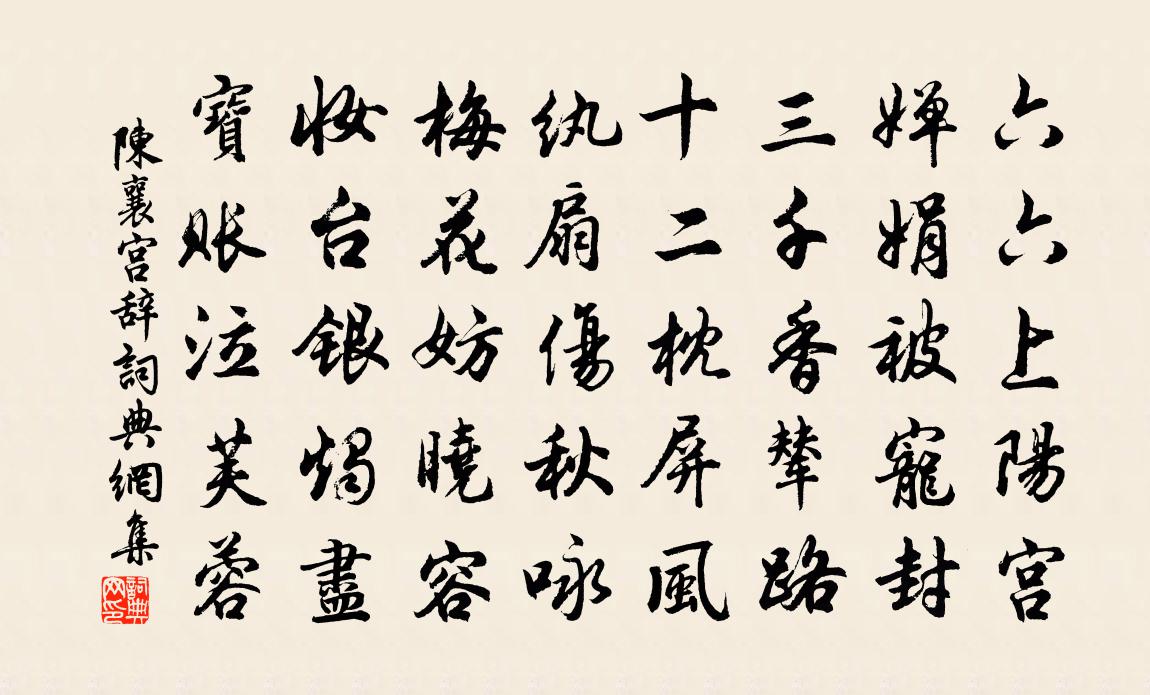 六六上陽宮
婵娟被寵封
三千香輦路
十二枕屏風
纨扇傷秋咏
梅花妨曉容
妝台銀燭盡
寶賬泣芙蓉
陳襄宮辞詞典網集
詞典网印